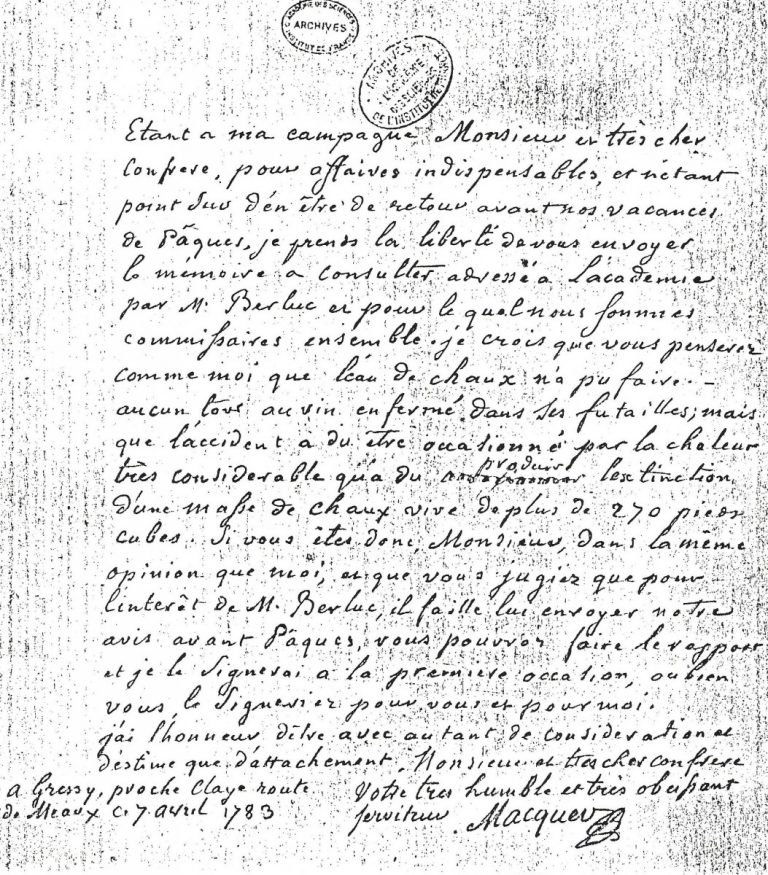 ACADÉMIE DES SCIENCES
ARCHIVES
INSTITUT DE FRANCE
ARCHIVES
DE
L'ACADÉMIE
DES SCIENCES
DE L'INSTITUT
Etant a ma campagne Monsieur et très cher
Confrere, pour affaires indispensables, et n'étant
point sur d'en être de retour avant nos vacances
de Pâques, je prends la liberté de vous envoyer
le mémoire a consulter adressé a L'académie
par M. Berluc et pour le quel nous sommes
commissaires ensemble. je crois que vous penserez
comme moi que l'eau de chaux n'a pu faire
aucun tort au vin enfermé dans ses futailles; mais
que l'accident a du être occasionné par la chaleur
produire
très considerable qu'a du l'extinction
d'une masse de chaux vive de plus de 270 pieds
cubes. Si vous êtes donc, Monsieur, dans la même
opinion que moi, et que vous jugiez que pour
l'interêt de M. Berluc, il faille lui envoyer notre
avis avant Pâques, vous pouvrez faire le rapport
et je le signerai a la premiere occasion, ou bien
vous le signeriez pour vous et pour moi.
j'ai l'honneur d'être avec autant de consideration et
d'estime que d'attachement, Monsieur et tres cher confrere
Votre tres humble et très obeissant
serviteur Macquer
a Gressy, proche Claye route
de Meaux ce 7 avril 1783